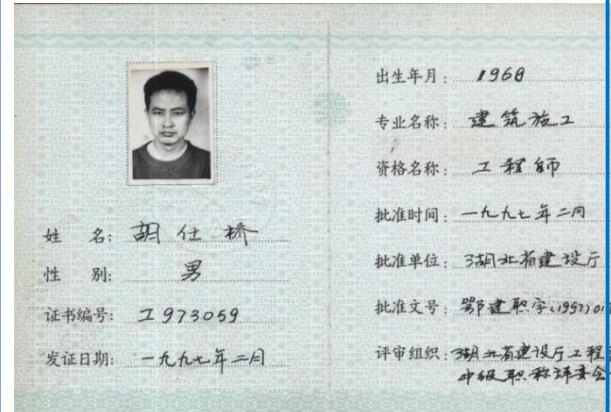 姓　名: 胡仕桥
性　别: 男
证书编号: 工973059
发证日期: 一九九七年二月
出生年月: 1968
专业名称: 建筑施工
资格名称: 工程师
批准时间: 一九九七年二月
批准单位: 湖北省建设厅
批准文号: 鄂建职字(1997)01
评审组织: 湖北省建设厅工程
中级职称评委会